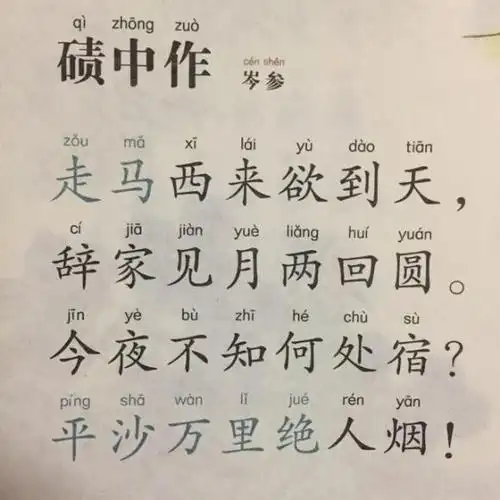 qì zhōng zuò
碛中作 cén shēn
岑参
zǒu mǎ xī lái yù dào tiān
走马西来欲到天，
cí jiā jiàn yuè liǎng huí yuán
辞家见月两回圆。
jīn yè bù zhī hé chù sù
今夜不知何处宿？
píng shā wàn lǐ jué rén yān
平沙万里绝人烟！